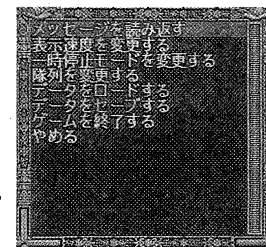 メッセージを読み返す
表示速度を変更する
一時停止モードを変更する
隊列を変更する
データをロードする
データをセーブする
ゲームを終了する
やめる